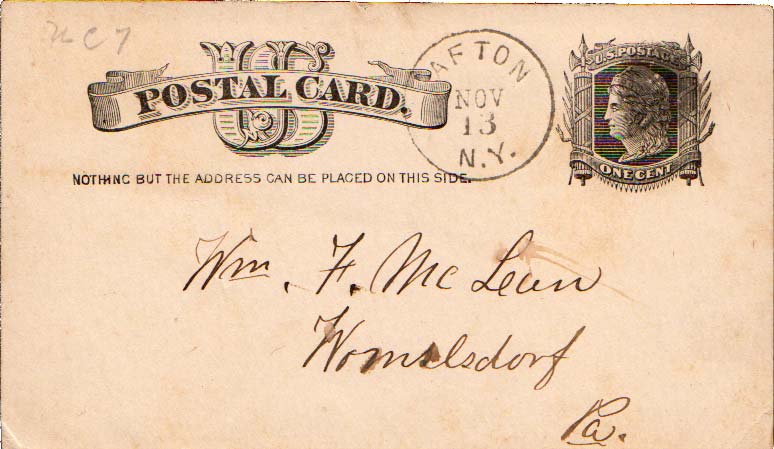 UC7
US
POSTAL CARD.
NOTHING BUT THE ADDRESS CAN BE PLACED ON THIS SIDE.
AFTON
NOV
13
N.Y.
U.S. POSTAGE
ONE CENT
Wm. F. McLean
Womelsdorf
Pa.